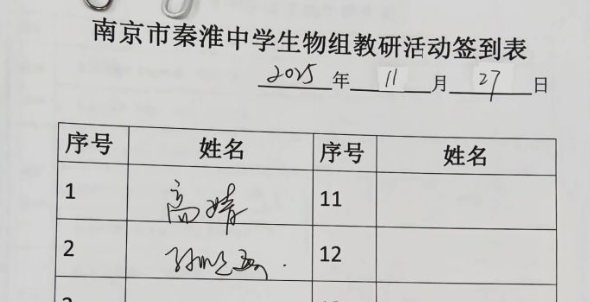 南京市秦淮中学生物组教研活动签到表
2025年11月27日
序号 姓名 序号 姓名
1 高婧 11
2 12